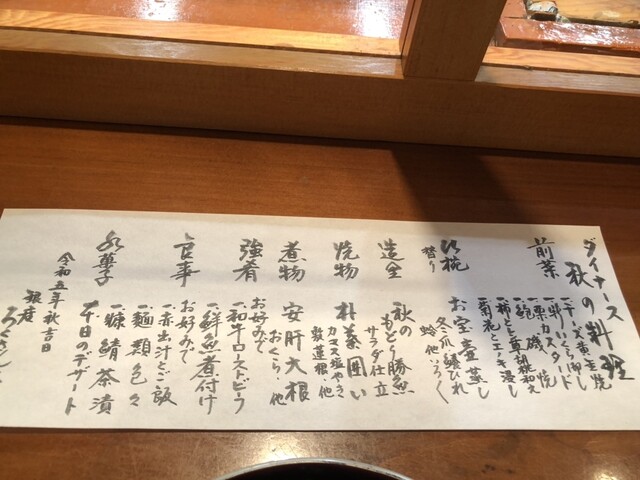 ダイナース
秋の料理
前菜
一、干しいくら卸し
一、栗カスタード
一、鮑磯焼
一、柿と豆胡桃和え
一、菊花とエノキ浸し
吸椀
替り
お宝壷蒸し
冬瓜鱶ひれ
蛤、他いろく
造里
秋の
もどり鰹魚
サラダ仕立
焼物
朴葉囲い
カマス塩やき
穀蓮根・他
煮物
安肝大根
おくら・他
強肴
お好みで
一、和牛ローストビーフ
一、鮮魚煮付け
食事
お好みで
一、赤出汁とご飯
一、麺類色々
一、糠鯖茶漬
水菓子
本日のデザート
令和五年秋吉日
銀座